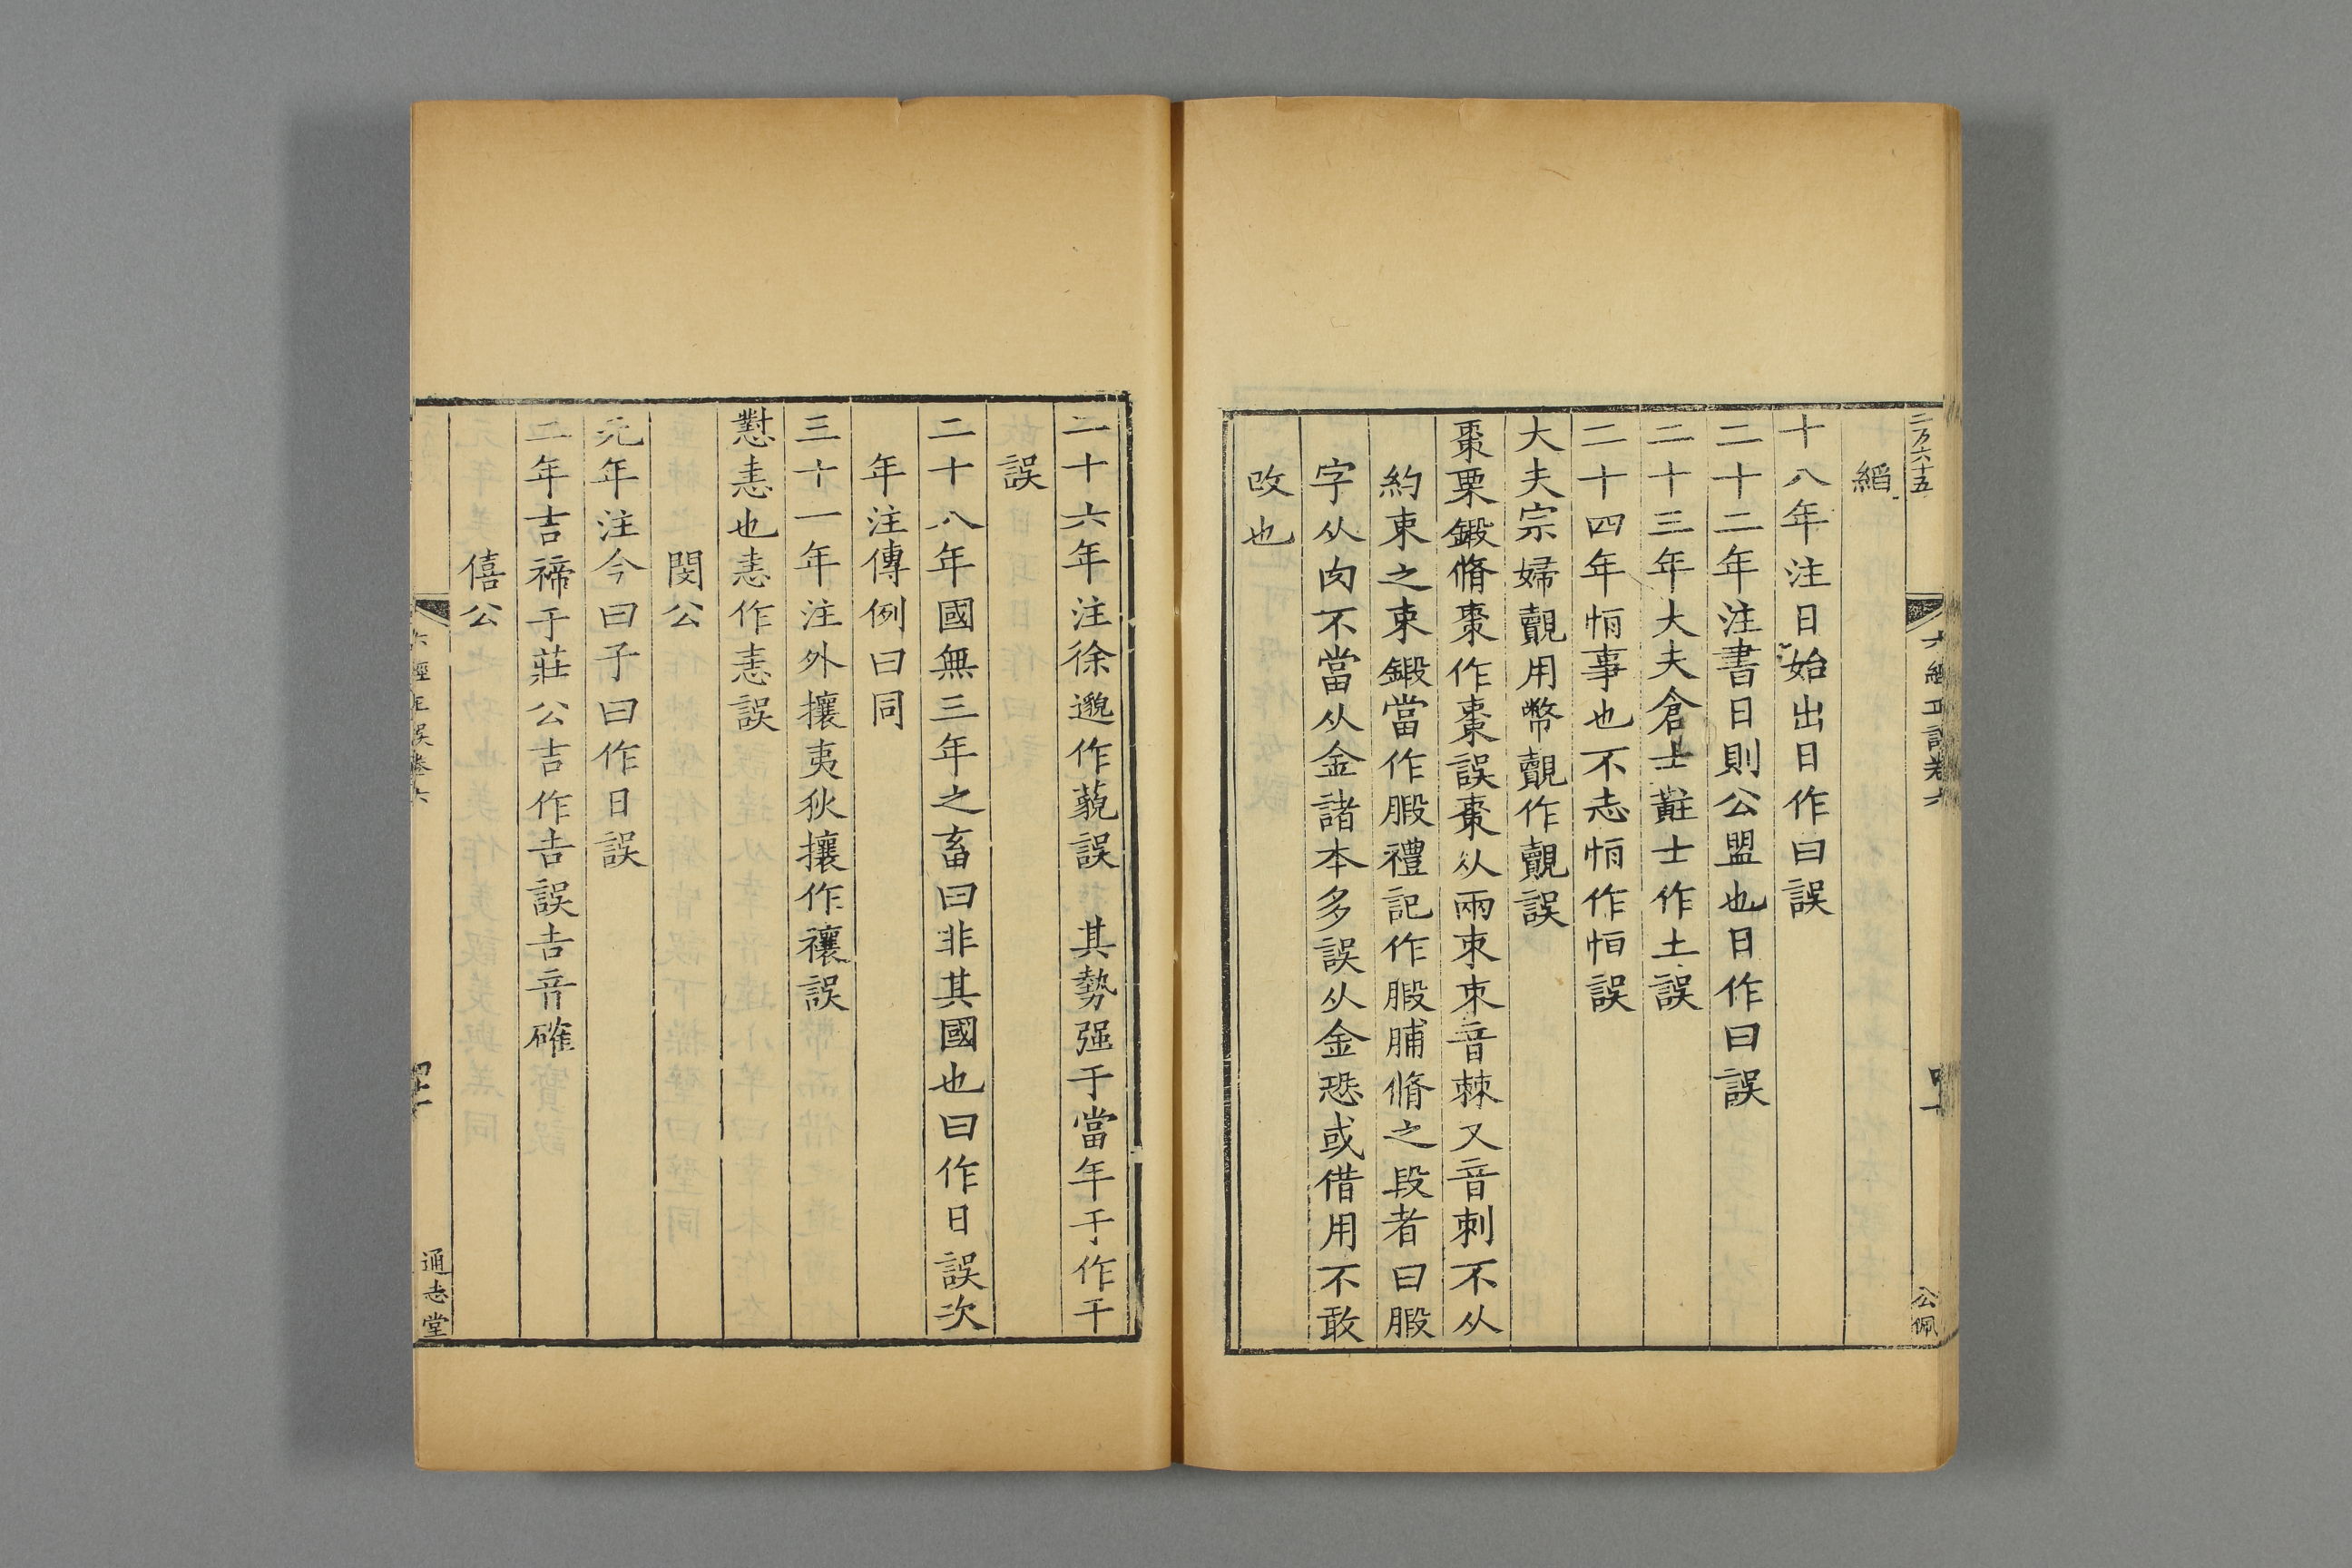 二万六十五
六經正誤卷六
四十
公佩
縚
十八年注日始出日作曰誤
二十二年注書日則公盟也日作曰誤
二十三年大夫倉士黈士作土誤
二十四年恦事也不志恦作恒誤
大夫宗婦覿用幣覿作覿誤
棗栗鍛脩棗作棗誤棗从兩朿朿音棘又音刺不从
約束之束鍛當作腶禮記作腶脯脩之段者曰腶
字从肉不當从金諸本多誤从金恐或借用不敢
改也
二十六年注徐邈作藐誤 其勢强于當年于作干
誤
二十八年國無三年之畜曰非其國也曰作日誤次
年注傳例曰同
三十一年注外攘夷狄攘作禳誤
懟恚也恚作恚誤
閔公
元年注今曰子曰作日誤
二年吉禘于莊公吉作吿誤吿音確
僖公
六經正誤卷六
四十一
通志堂